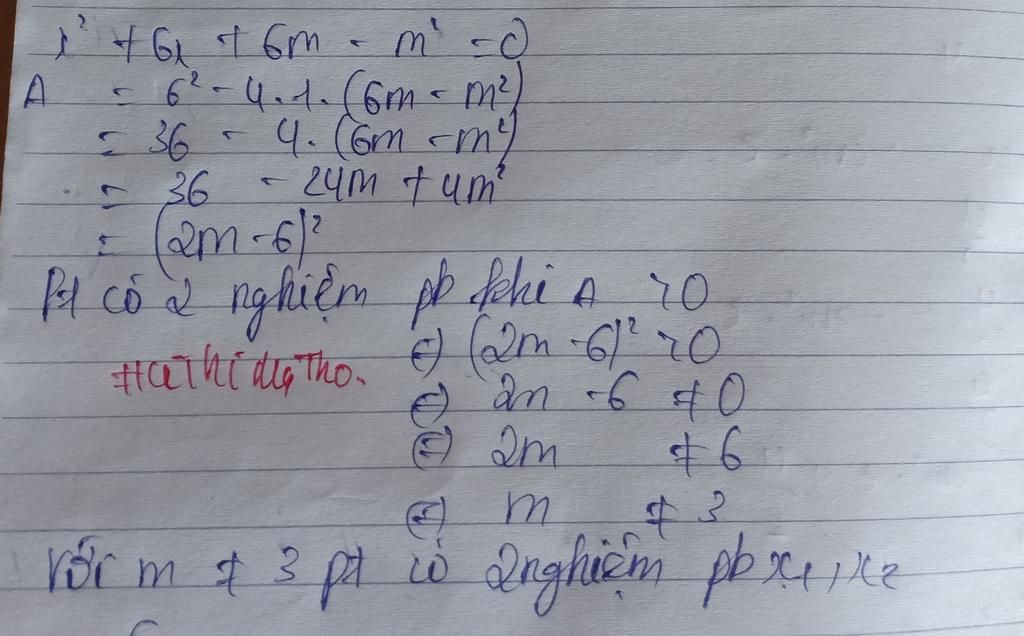 x² + 6x + 6m - m² = 0
Δ = 6² - 4.1.(6m - m²)
= 36 - 4.(6m - m²)
= 36 - 24m + 4m²
= (2m - 6)²
Pt có 2 nghiệm pb khi Δ > 0
⇔ (2m - 6)² > 0
⇔ 2m - 6 ≠ 0
⇔ 2m ≠ 6
⇔ m ≠ 3
Với m ≠ 3 pt có 2 nghiệm pb x₁, x₂